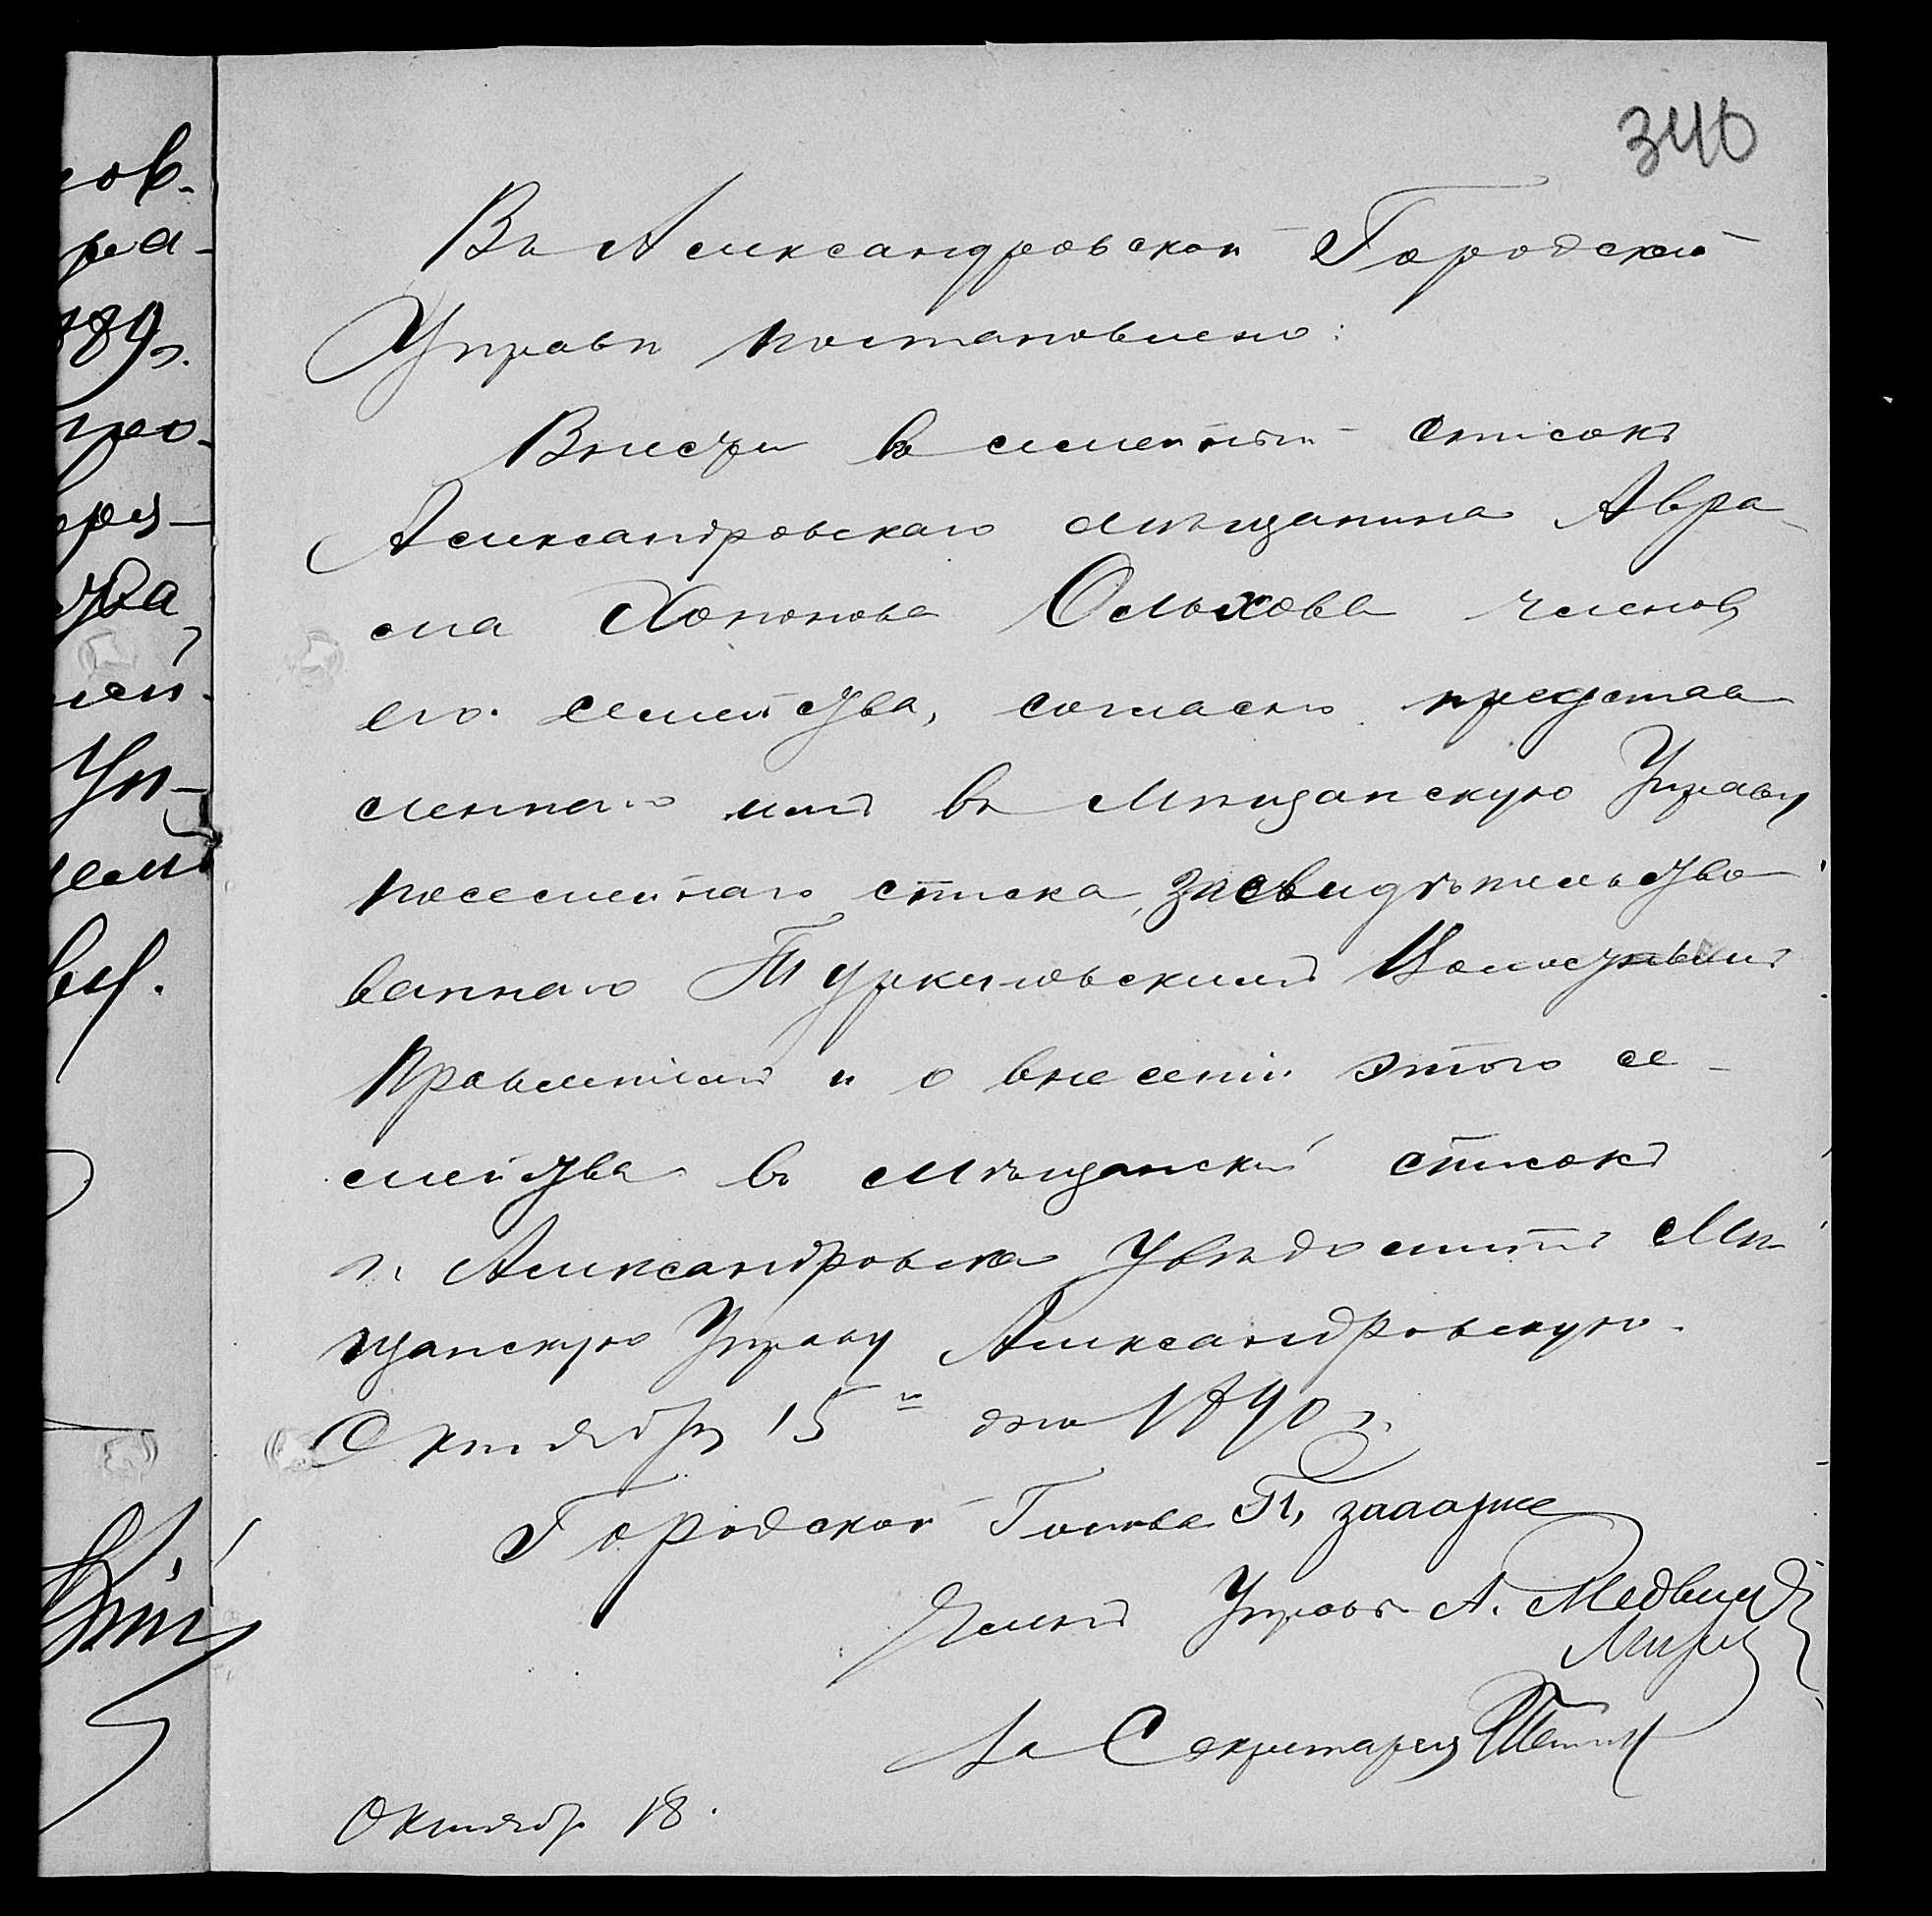 340
Въ Александровской Городской
Управѣ постановлено:
Внести въ семейный списокъ
Александровскаго мѣщанина Авра-
ма Хононова Ольхова членовъ
его семейства, согласно представ
леннаго имъ въ Мѣщанскую Управу
посемейнаго списка, засвидѣтельство
ваннаго Туркеновскимъ Волостнымъ
Правленіемъ и о внесеніи этого се-
мейства въ мѣщанскій списокъ
г. Александровска увѣдомить Мѣ
щанскую Управу Александровскую.
Октября 15 дня 1890 г.
Городской Голова
Членъ Управы А.
За Секретаря
Октябр 18.
ов-
ра-
889г.
ей-
Уп-